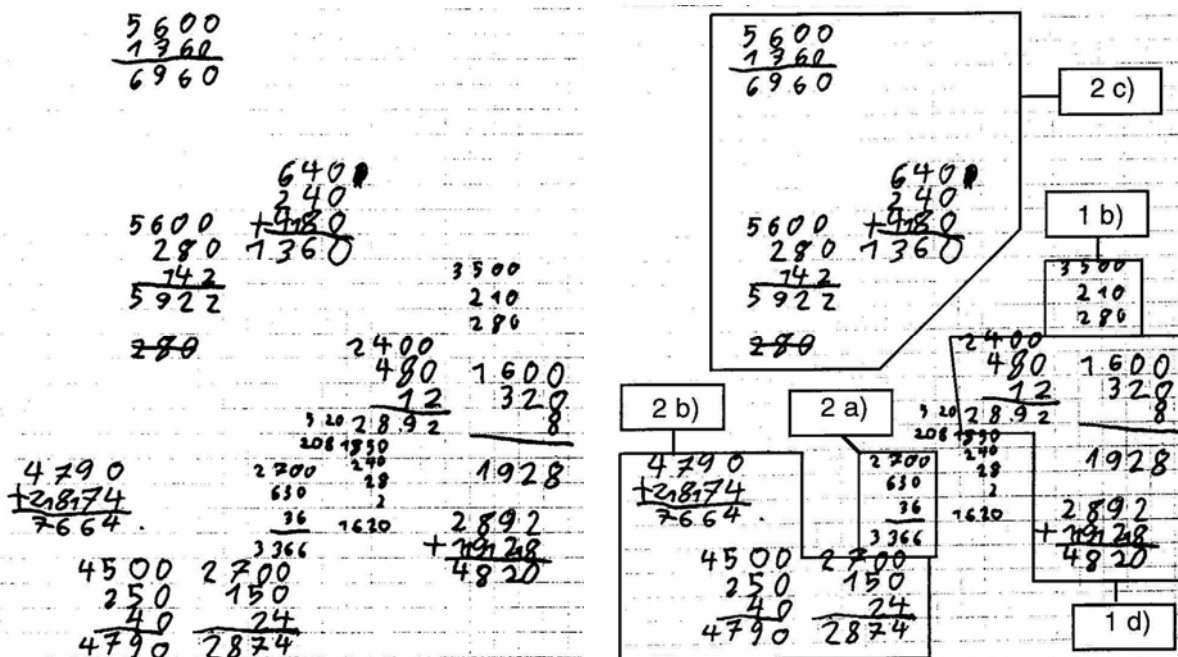 5600
1360
6960
640
240
+480
1360
5600
280
142
5922
280
3500
210
280
2400
480
12
2892
1600
320
8
1928
5 20
208 1850
240
28
2
1620
2700
630
36
3366
4790
+2874
7664
2892
+1928
4820
4500
250
40
4790
2700
150
24
2874
5600
1360
6960
2 c)
640
240
+480
1360
5600
280
142
5922
280
1 b)
3500
210
280
2400
480
12
2892
1600
320
8
1928
5 20
208 1850
240
28
2
1620
2 b)
2 a)
2700
630
36
3366
4790
+2874
7664
2892
+1928
4820
4500
250
40
4790
2700
150
24
2874
1 d)